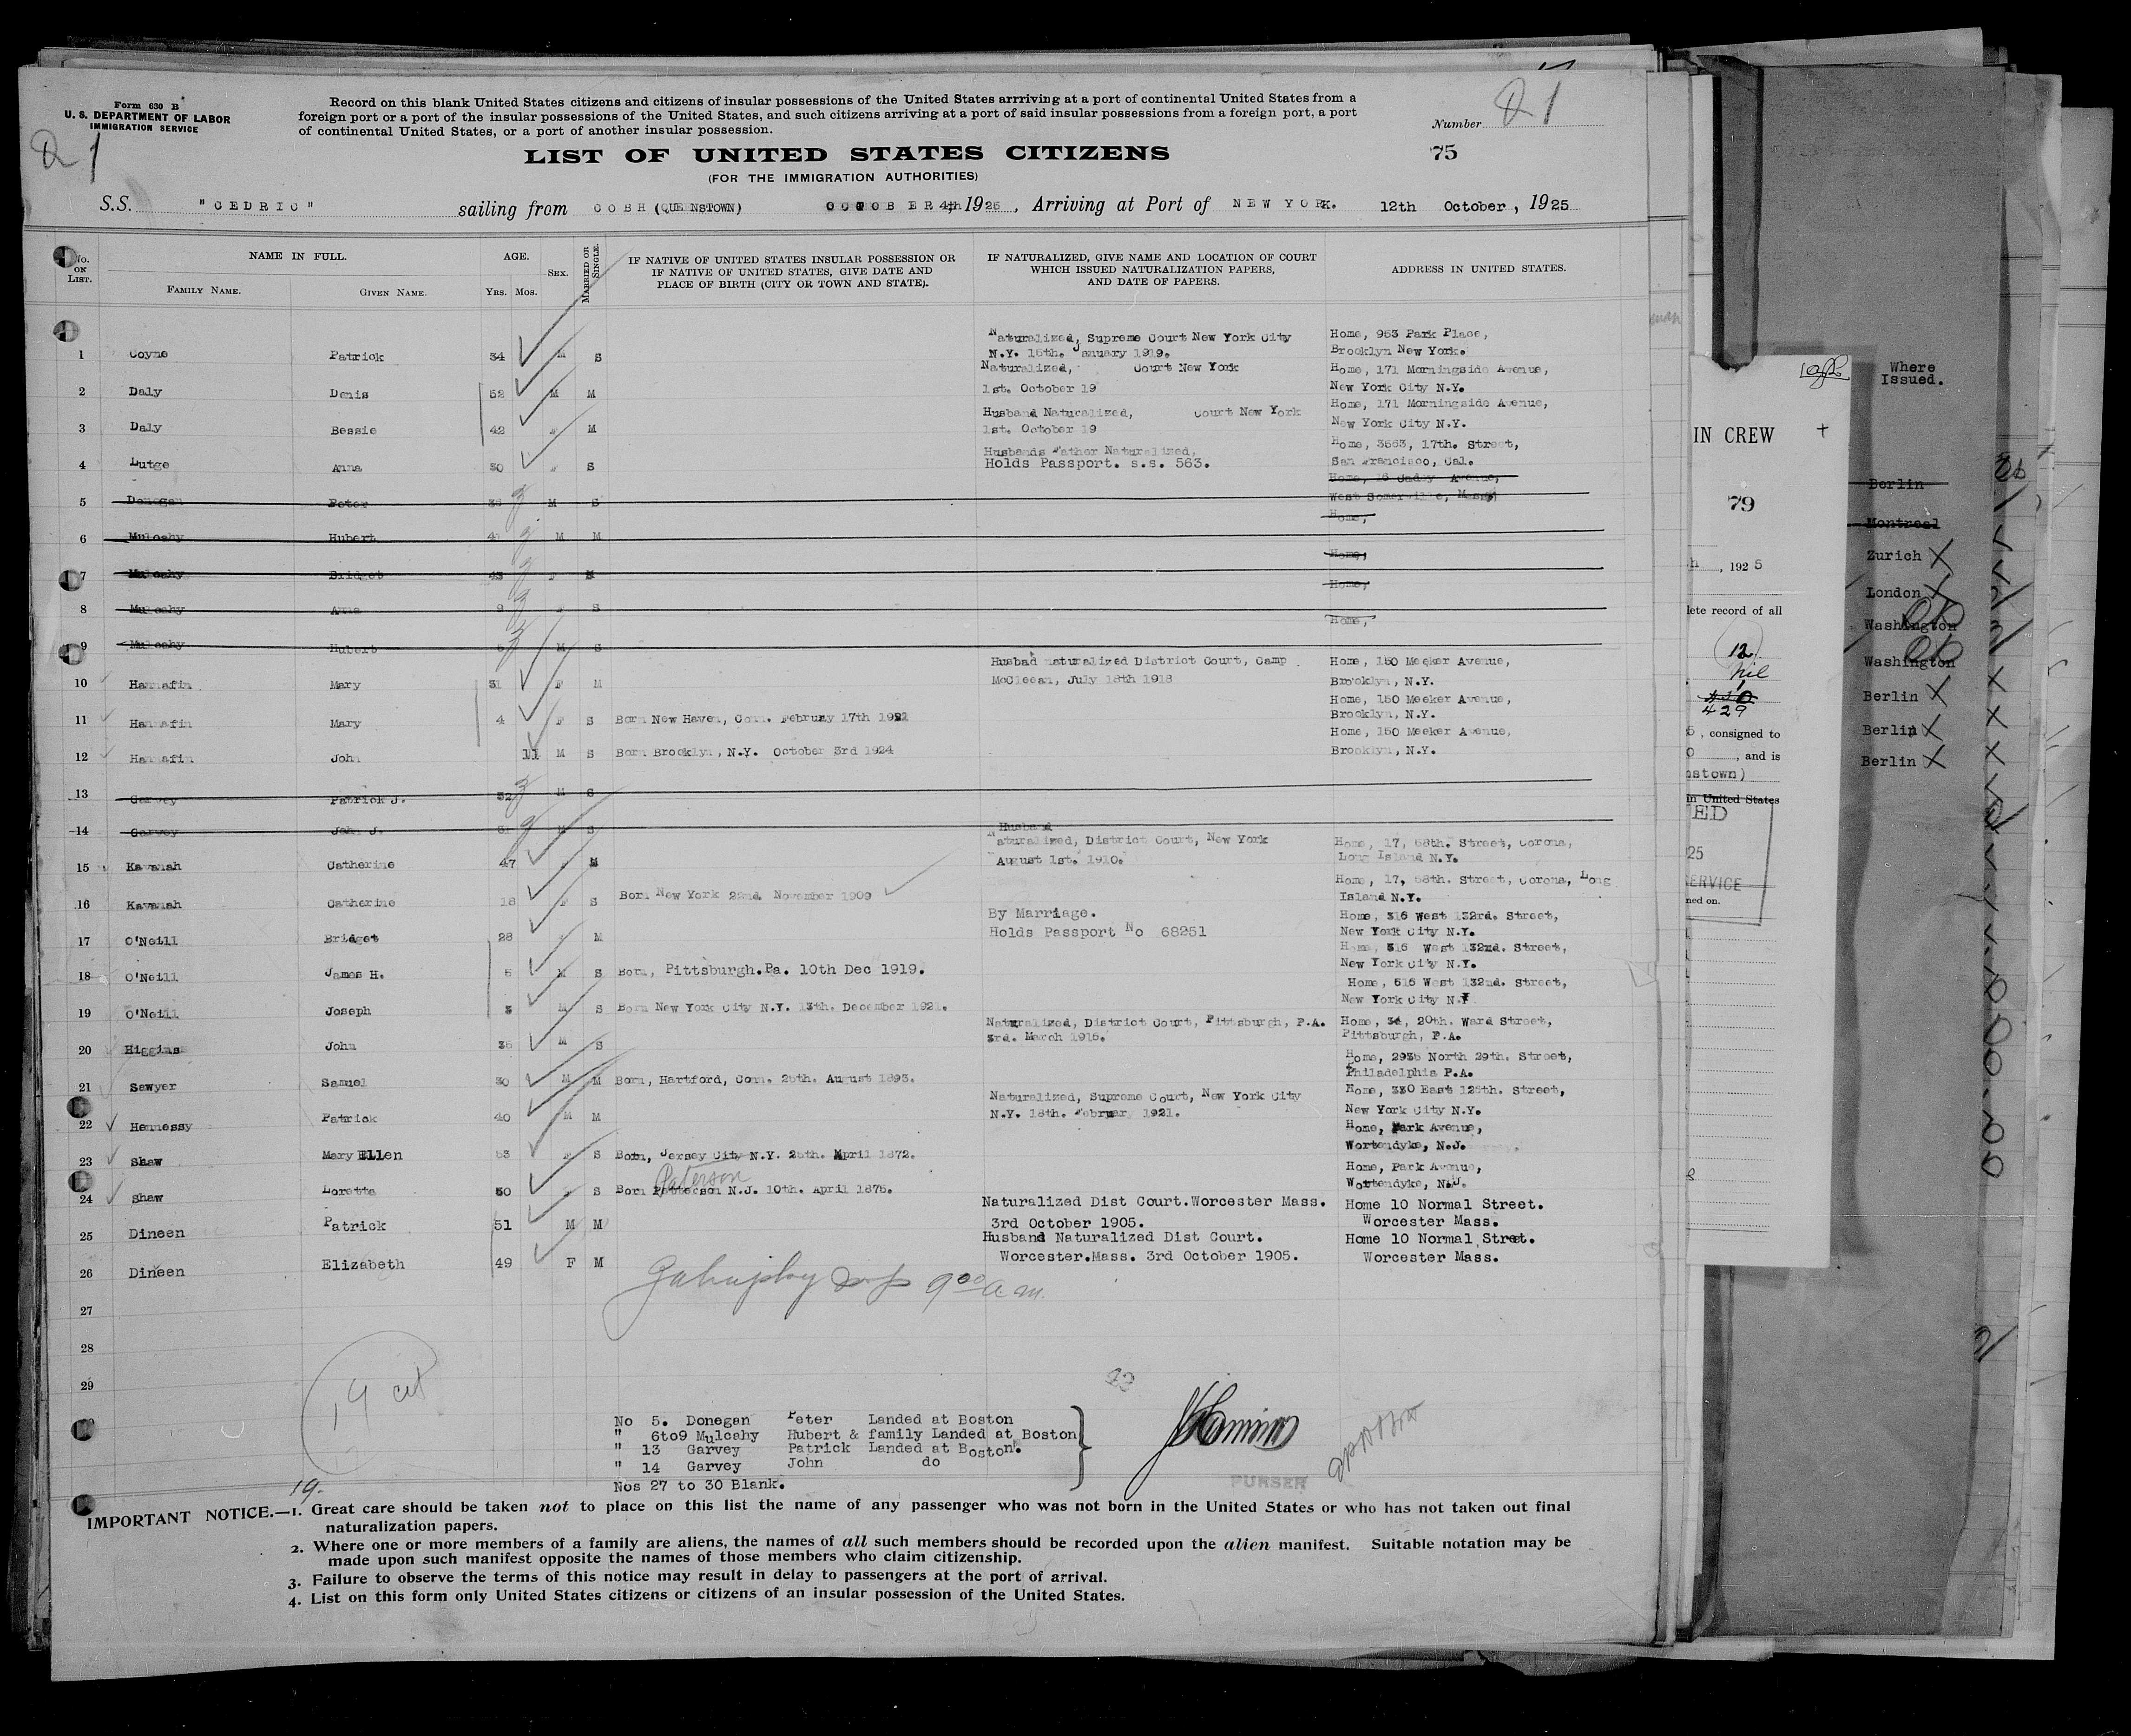 Form 630 B
U. S. DEPARTMENT OF LABOR
IMMIGRATION SERVICE
Record on this blank United States citizens and citizens of insular possessions of the United States arrriving at a port of continental United States from a
foreign port or a port of the insular possessions of the United States, and such citizens arriving at a port of said insular possessions from a foreign port, a port
of continental United States, or a port of another insular possession.
Number 21
21
LIST OF UNITED STATES CITIZENS
75
(FOR THE IMMIGRATION AUTHORITIES)
S.S. "CEDRIC" sailing from COBH (QUEENSTOWN) OCTOBER 4th 1925, Arriving at Port of NEW YORK. 12th October, 1925
No. ON LIST. NAME IN FULL. FAMILY NAME. GIVEN NAME. AGE. YRS. MOS. SEX. MARRIED OR SINGLE.
IF NATIVE OF UNITED STATES INSULAR POSSESSION OR IF NATIVE OF UNITED STATES, GIVE DATE AND PLACE OF BIRTH (CITY OR TOWN AND STATE).
IF NATURALIZED, GIVE NAME AND LOCATION OF COURT WHICH ISSUED NATURALIZATION PAPERS, AND DATE OF PAPERS.
ADDRESS IN UNITED STATES.
1 Coyne Patrick 34 M S Naturalized, Supreme Court New York City N.Y. 15th. January 1919. Home, 953 Park Place, Brooklyn New York.
2 Daly Denis 52 M M Naturalized, Court New York 1st. October 19 Home, 171 Morningside Avenue, New York City N.Y.
3 Daly Bessie 42 F M Husband Naturalized, Court New York 1st. October 19 Home, 171 Morningside Avenue, New York City N.Y.
4 Lutge Anna 30 S Husbands Father Naturalized, Holds Passport. s.s. 563. Home, 3563, 17th. Street, San Francisco, Cal.
5 Donegan Peter M S Home, Avenue, West Somerville, Mass,
6 Mulcahy Hubert M M Home,
7 Mulcahy Bridget 43 F M Home,
8 Mulcahy Anna 9 F S Home,
9 Mulcahy Hubert M S Home,
10 Hannafin Mary 31 F M Husbad naturalized District Court, Camp McCleean, July 18th 1918 Home, 150 Meeker Avenue, Brooklyn, N.Y.
11 Hannafin Mary 4 F S Born New Haven, Conn. Februay 17th 1921 Home, 150 Meeker Avenue, Brooklyn, N.Y.
12 Hannafin John 11 M S Born Brooklyn, N.Y. October 3rd 1924 Home, 150 Meeker Avenue, Brooklyn, N.Y.
13 Garvey Patrick J. 32 M S
14 Garvey John J. M S
15 Kavanah Catherine 47 M Husband Naturalized, District Court, New York August 1st. 1910. Home, 17, 58th. Street, Corona, Long Island N.Y.
16 Kavanah Catherine F S Born New York 22nd. November 1909 Home, 17, 58th. Street, Corona, Long Island N.Y.
17 O'Neill Bridget 28 M By Marriage. Holds Passport No 68251 Home, 516 West 132rd. Street, New York City N.Y.
18 O'Neill James H. 5 M S Born, Pittsburgh.Pa. 10th Dec 1919. Home, 516 West 132nd. Street, New York City N.Y.
19 O'Neill Joseph 3 M S Born New York City N.Y. 13th. December 1921. Home, 515 West 132nd. Street, New York City N.Y
20 Higgins John M S Naturalized, District Court, Pittsburgh, P.A. 3rd. March 1915. Home, 34, 20th. Ward Street, Pittsburgh, P.A.
21 Sawyer Samuel 30 M M Born, Hartford, Conn. 25th. August 1895. Home, 2935 North 29th. Street, Philadelphia P.A.
22 Hennessy Patrick 40 M M Naturalized, Supreme Court, New York City N.Y. 18th. Februay 1921. Home, 330 East 125th. Street, New York City N.Y.
23 Shaw Mary Ellen 53 F S Born, Jersey City N.Y. 25th. April 1872. Home, Park Avenue, Wortendyke, N.J.
Paterson
24 Shaw Loretta 50 S Born Patterson N.J. 10th. April 1875. Home, Park Avenue, Wortendyke, N.J.
25 Dineen Patrick 51 M M Naturalized Dist Court.Worcester Mass. 3rd October 1905. Home 10 Normal Street. Worcester Mass.
26 Dineen Elizabeth 49 F M Husband Naturalized Dist Court. Worcester.Mass. 3rd October 1905. Home 10 Normal Street. Worcester Mass.
9 00 a m
27
28
29
19 cit
No 5. Donegan Peter Landed at Boston
" 6to9 Mulcahy Hubert & family Landed at Boston
" 13 Garvey Patrick Landed at Boston.
" 14 Garvey John do
Nos 27 to 30 Blank.
PURSER
19.
IMPORTANT NOTICE.—1. Great care should be taken not to place on this list the name of any passenger who was not born in the United States or who has not taken out final
naturalization papers.
2. Where one or more members of a family are aliens, the names of all such members should be recorded upon the alien manifest. Suitable notation may be
made upon such manifest opposite the names of those members who claim citizenship.
3. Failure to observe the terms of this notice may result in delay to passengers at the port of arrival.
4. List on this form only United States citizens or citizens of an insular possession of the United States.
IN CREW
79
h, 1925
lete record of all
12
Nil
1
429
5, consigned to
0, and is
nstown)
in United States
ED
25
SERVICE
ned on.
Where
Issued.
Berlin
Montreal
Zurich
London
Washington
Washington
Berlin
Berlin
Berlin